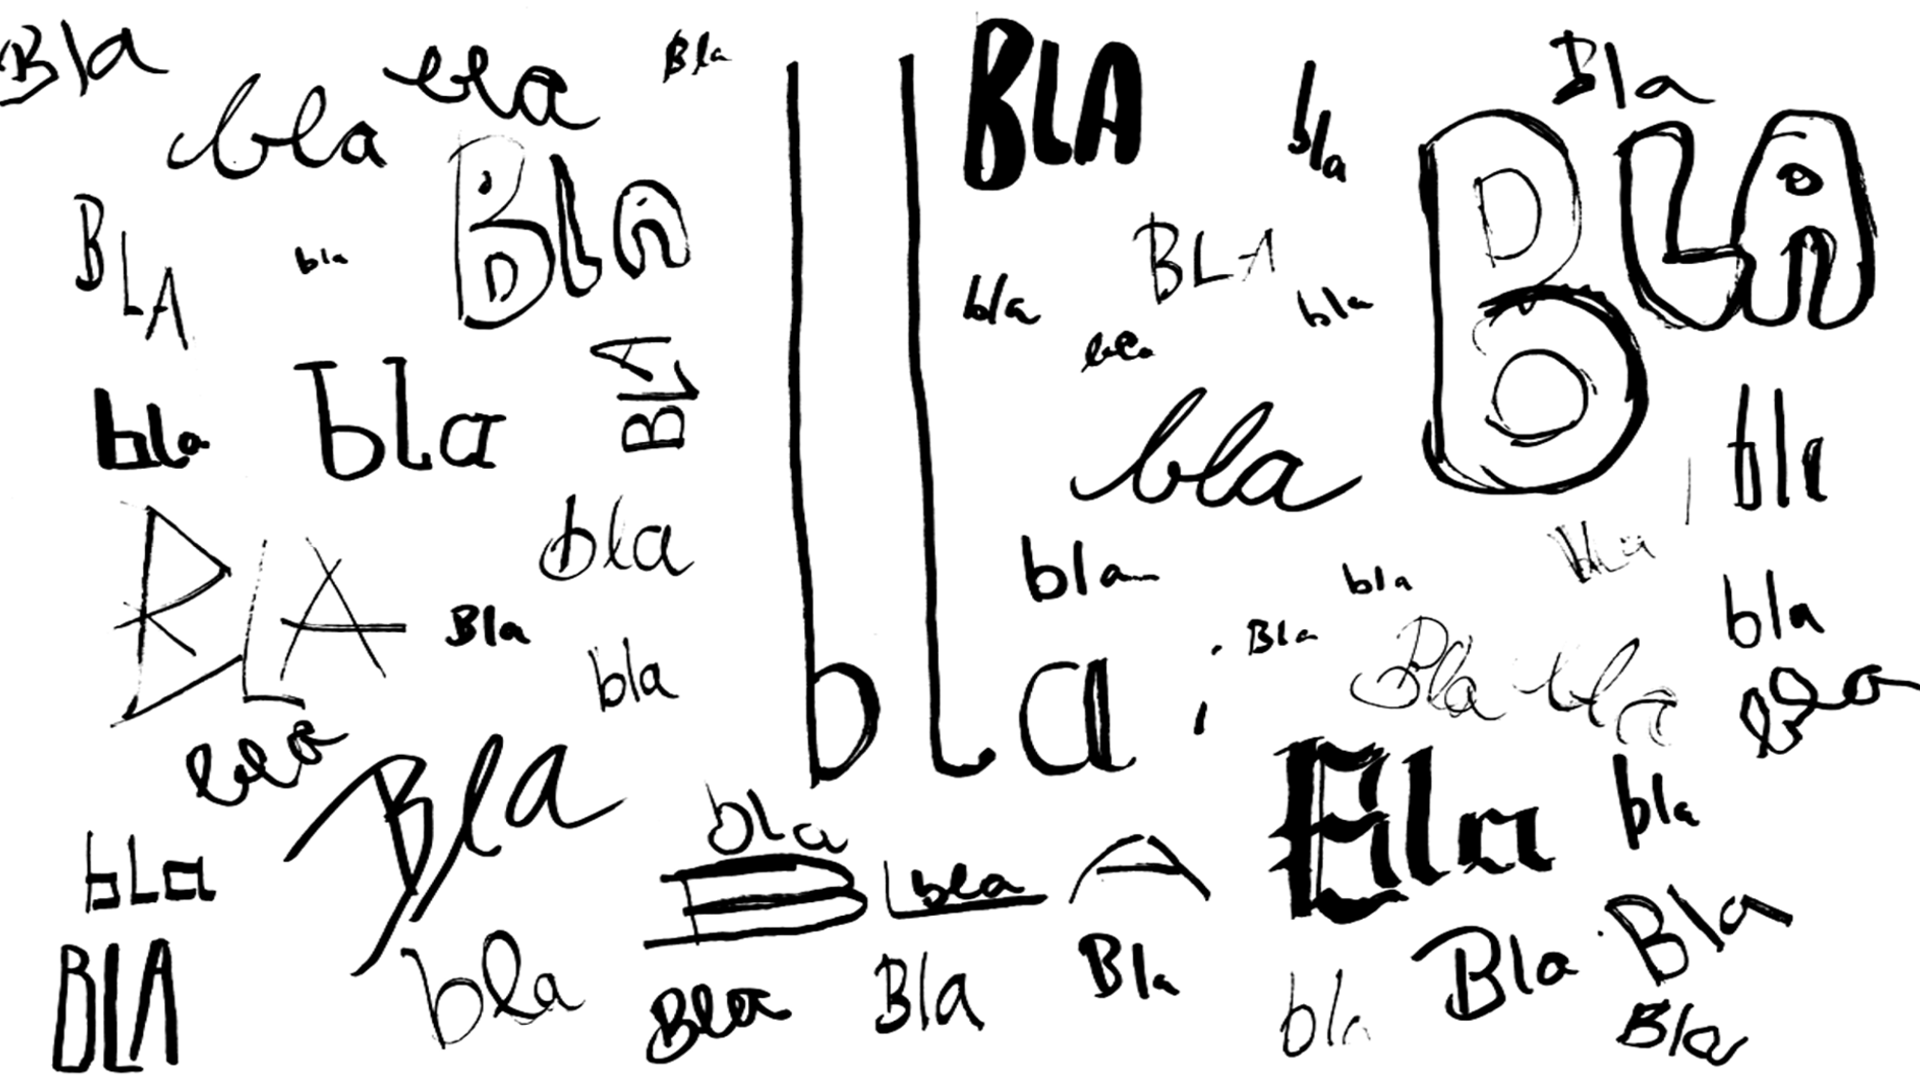 Bla
bla
bla
Bla
BLA
bla
Bla
BLA
bla
BLA
BLA
bla
BLA
bla
bla
bla
bla
bla
bla
BLA
BLA
bla
bla
bla
bla
bla
BLA
bla
Bla
bla
Bla
bla
bla
Bla
bla
bla
bla
Bla
bla
BLA
bla
Bla
bla
bla
BLA
bla
Bla
Bla
Bla
Bla
Bla
bla
Bla